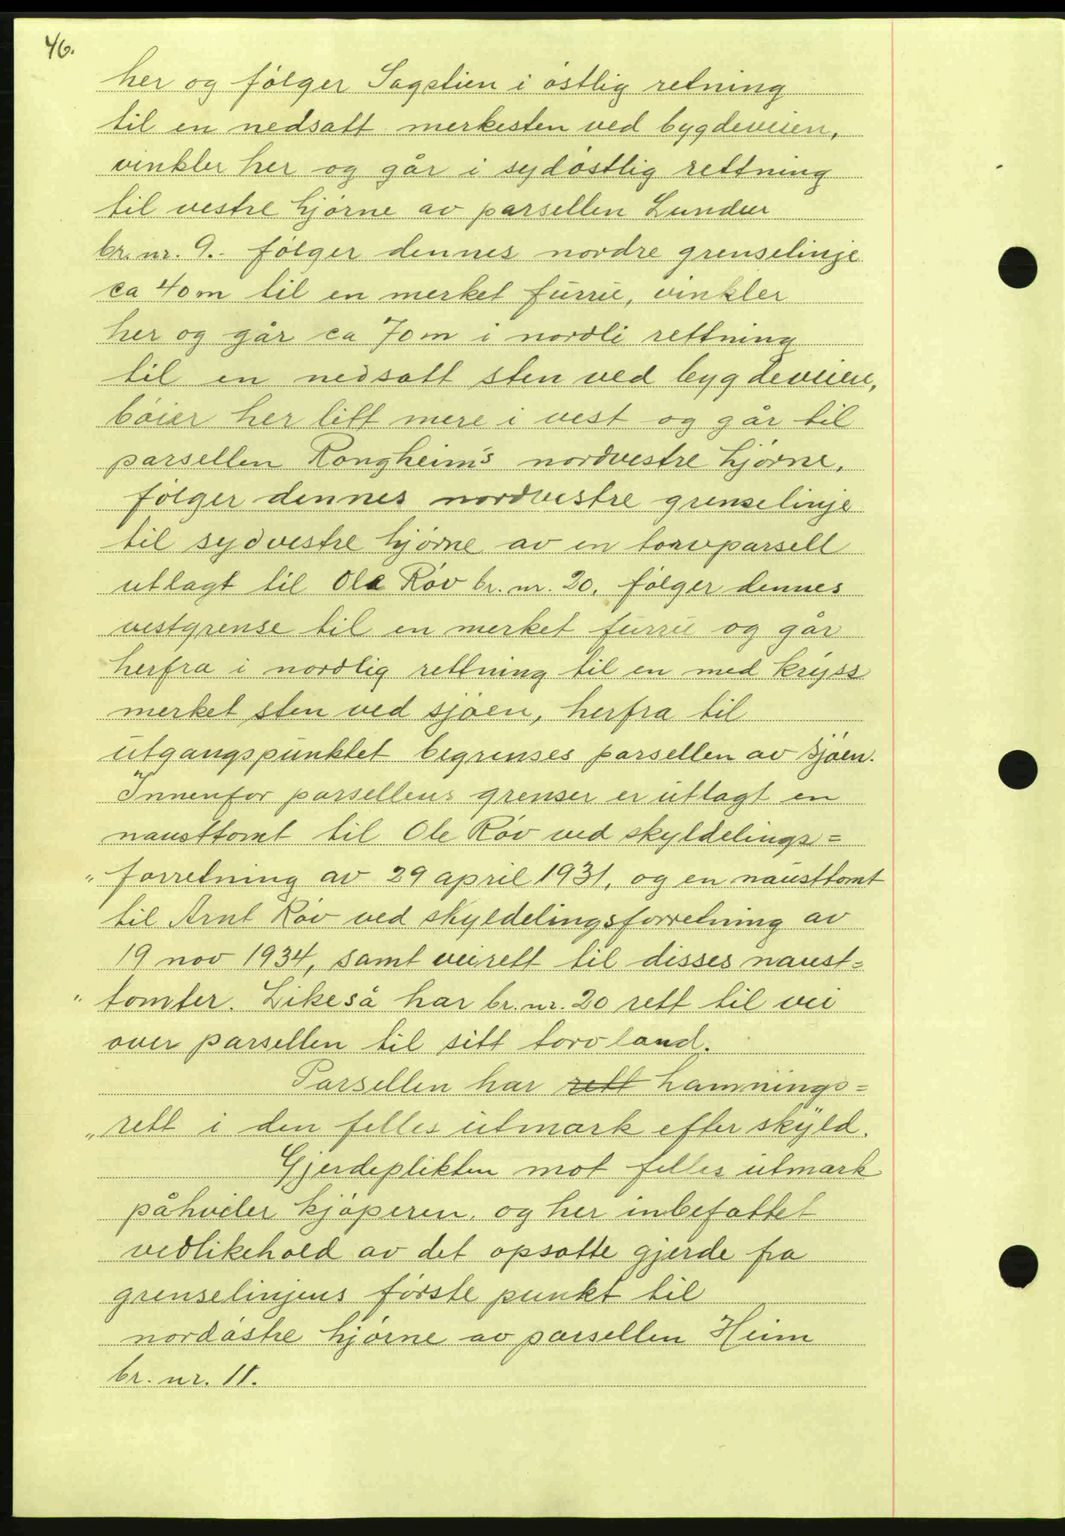 46.
her og følger Sagstien i østlig retning
til en nedsatt merkesten ved bygdeveien,
vinkler her og går i sydøstlig rettning
til vestre hjørne av parsellen Lunden
br. nr. 9. følger dennes nordre grenselinje
ca 40 m til en merket furru, vinkler
her og går ca 70 m i nordli rettning
til en nedsatt sten ved bygdeveien,
bøier her litt mere i vest og går til
parsellen Rongheim's nordvestre hjørne,
følger dennes nordvestre grenselinje
til sydvestre hjørne av en torvparsell
utlagt til Ole Røv br. nr. 20, følger dennes
vestgrense til en merket furru og går
herfra i nordlig rettning til en med kryss
merket sten ved sjøen, herfra til
utgangspunktet begrenses parsellen av sjøen.
Innenfor parsellens grenser er utlagt en
nausttomt til Ole Røv ved skyldelings=
„ forretning av 29 april 1931, og en nausttomt
til Arnt Røv ved skyldelingsforretning av
19 nov 1934, samt veirett til disses naust=
„ tomter. Likeså har br. nr. 20 rett til vei
over parsellen til sitt torvland.
Parsellen har rett hamnings=
„ rett i den felles utmark efter skyld.
Gjerdeplikten mot felles utmark
påhviler kjøperen, og her inbefattet
vedlikehold av det opsatte gjerde fra
grenselinjens første punkt til
nordøstre hjørne av parsellen Heim
br. nr. 11.